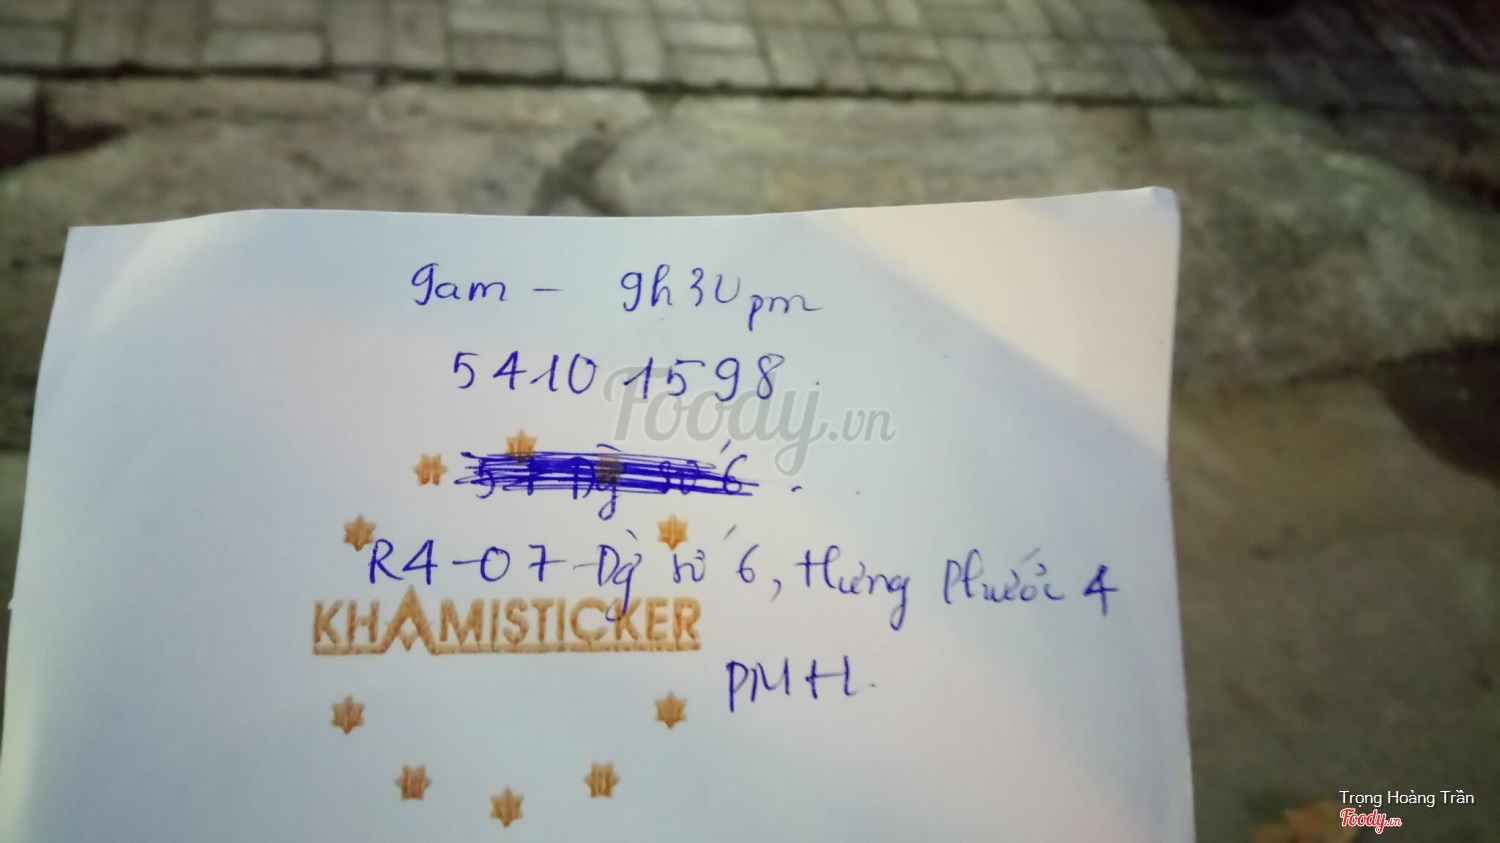 9am - 9h30pm
5410 1598
Foody.vn
R4-07-Đg số 6, Hưng Phước 4
KHAMISTICKER
PMH.
Trọng Hoàng Trần
Foody.vn